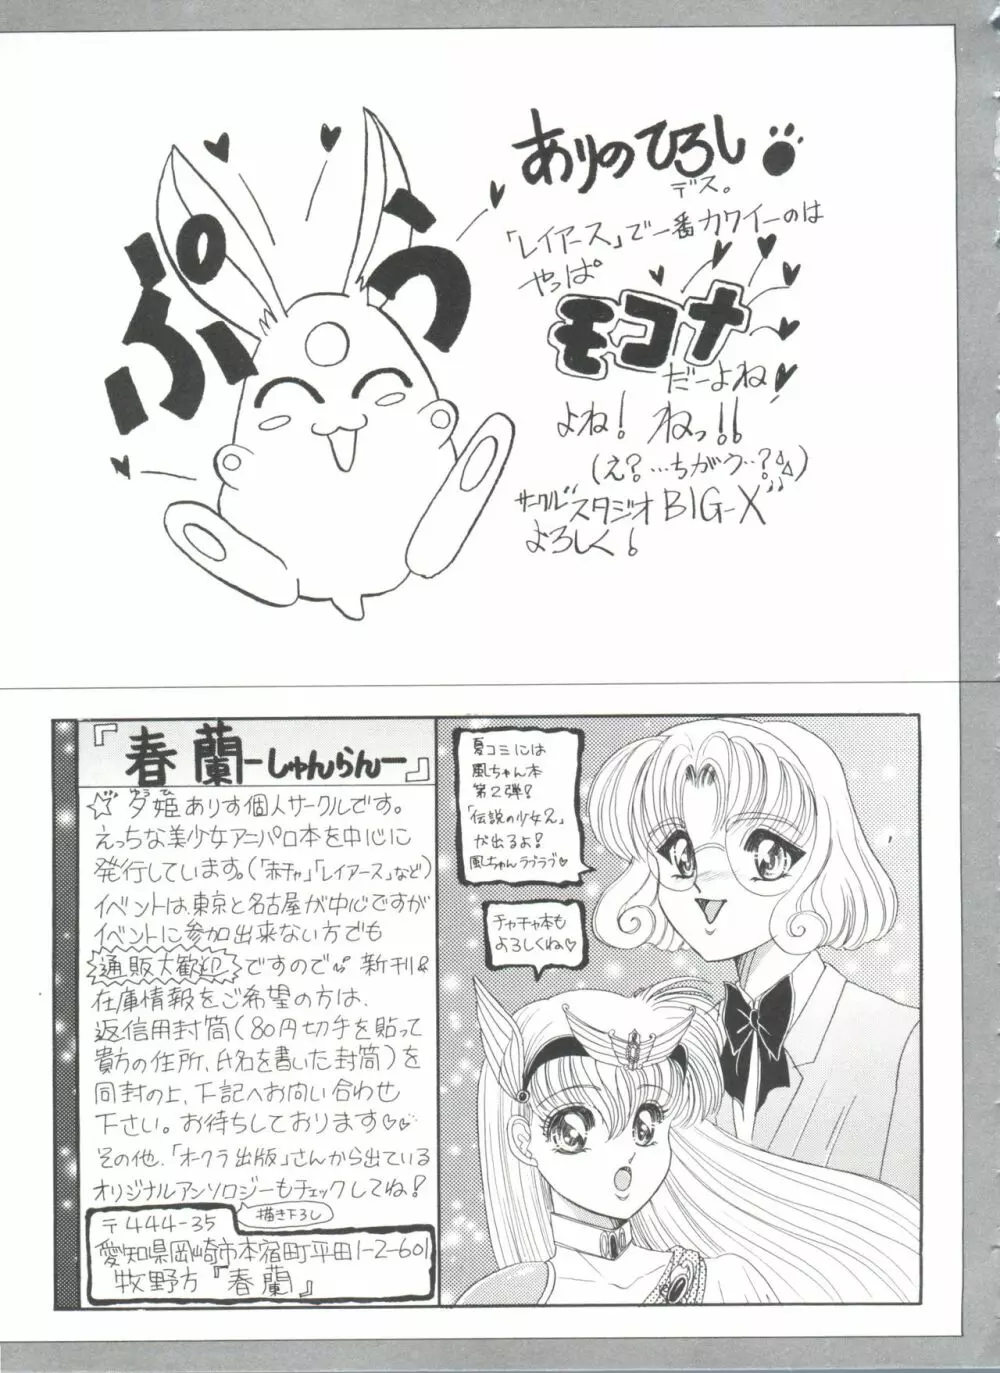 ぷう
ありのひろし
デス。
「レイアース」で一番カワイーのは
やっぱ
モコナ
だーよね!
よね! ねっ!!
(え?…ちがう…?)
サークル"スタジオBIG-X"
よろしく!
『春蘭ーしゅんらんー』
☆夕姫ありす個人サークルです。
ゆうひ
えっちな美少女アニパロ本を中心に
発行しています。(「赤チャ」「レイアース」など)
イベントは、東京と名古屋が中心ですが
イベントに参加出来ない方でも
通販大歓迎ですので 新刊&
在庫情報をご希望の方は、
返信用封筒(80円切手を貼って
貴方の住所、氏名を書いた封筒)を
同封の上、下記へお問い合わせ
下さい。お待ちしております♡♡
その他、「オークラ出版」さんから出ている
オリジナルアンソロジーもチェックしてね!
描き下ろし
〒444-35
愛知県岡崎市本宿町平田1-2-601
牧野方『春蘭』
夏コミには
風ちゃん本
第2弾!
「伝説の少女2」
が出るよ!
風ちゃんラブラブ♡
チャチャ本も
よろしくね♡